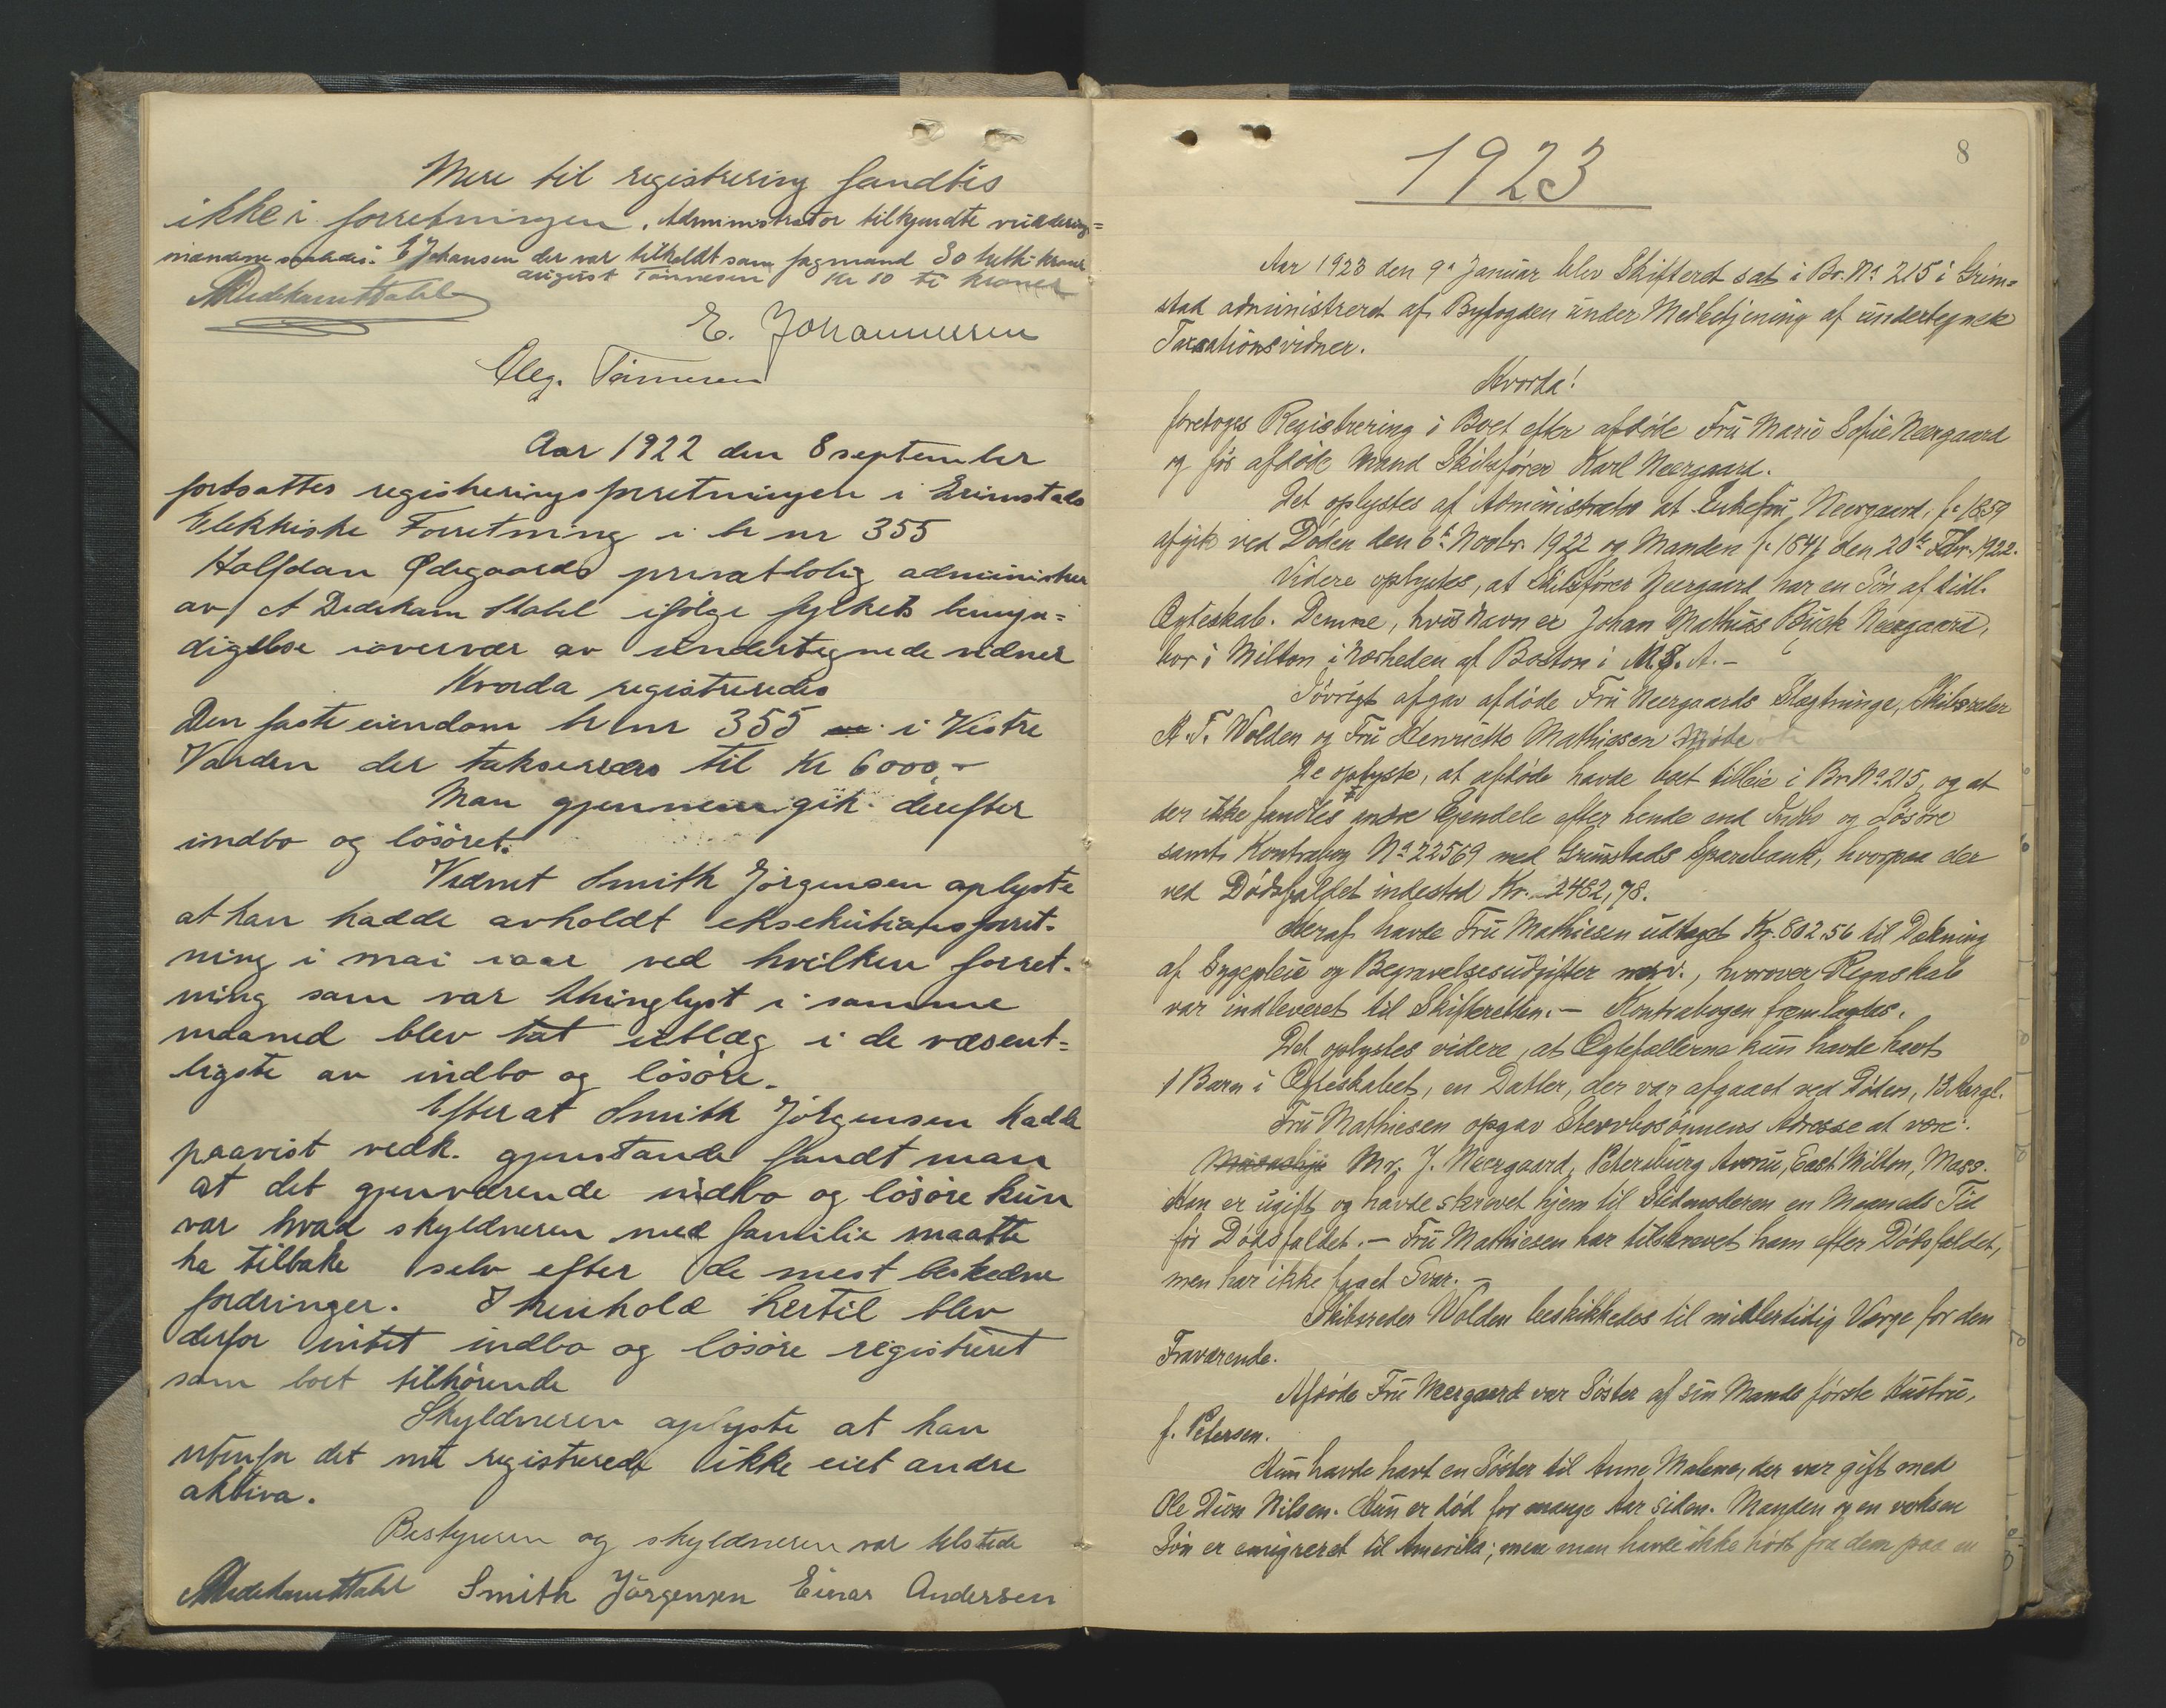 Mere til registrering fandtis
ikke i forretningen. Administrator tilkjendte vurderings=
mændene saaledes: E Johansen der var tilkaldt som fagmand 30 tretti kroner
august Tönnesen Kr 10 ti kroner
A Dedekam Stahl
E. Johannessen
Aug. Tönnesen
Aar 1922 den 8 september
fortsattes registreringsforretningen i Grimstads
Elektriske Forretning i br nr 355
Halfdan Ødegaards privatbolig administrer
av A Dedekam Stahl ifölge fylkets bemyn=
digelse i overvær av undertegnede vidner
Hvorda registreredes
Den faste eiendom br nr 355 i Vestre
Varden der takseres til Kr 6000,-
Man gjennemgik derefter
indbo og lösöret.
Vidnet Smith Jörgensen oplyste
at han hadde avholdt eksekutionsforret-
ning i mai iaar ved hvilken forret-
ning som var thinglyst i samme
maaned blev tat utlæg i de væsent=
ligste av indbo og lösöre.
Efter at Smith Jörgensen hadde
paavist vedk. gjenstande fandt man
at det gjenværende indbo og lösöre kun
var hvad skyldneren med familie maatte
ha tilbake selv efter de mest beskedne
fordringer. I henhold hertil blev
derfor intet indbo og lösöre registreret
som boet tilhörende
Skyldneren oplyste at han
utenfor det nu registrerede ikke eiet andre
aktiva.
Bestyreren og skyldneren var tilstede
A Dedekam Stahl Smith Jörgensen Einar Andersen
8
1923
Aar 1923 den 9de Januar blev Skifteret sat i Br. No 215 i Grim=
stad administreret af Byfogden under Medbetjening af undertegnede
Taxationsvidner.
Hvorda!
foretoges Registrering i Boet efter afdöde Fru Marie Sofie Neergaard
og för afdöde Mand Skibsförer Karl Neergaard.
Det oplystes af Administrator at Enkefru Neergaard, f. 1859
afgik ved Döden den 6te Novbr. 1922 og Manden f. 1841 den 20de Febr. 1922.
Videre oplystes, at Skibsförer Neergaard har en Sön af tidl.
Ægteskab. Denne, hvis Navn er Johan Mathias Buck Neergaard,
bor i Milton i Nærheden af Boston i U.S.A. -
Iövrigt afgav afdöde Fru Neergaards Slægtninge, Skibsreder
A. T. Wolden og Fru Henriette Mathiesen Möde
De oplyste, at afdöde havde boet tilleie i Br. No 215, og at
der ikke fandtes andre Ejendele efter hende end Indbo og Lösöre
samt Kontrabog No 22569 med Grimstads Sparebank, hvorpaa der
ved Dödsfaldet indestod Kr. 2482,78.
Heraf havde Fru Mathiesen udtaget Kr. 802.56 til Dækning
af Sygepleie og Begravelsesudgifter m.v., hvorover Regnskab
var indleveret til Skifteretten. - Kontrabogen fremlagdes.
Det oplystes videre, at Ægtefællerne kun havde havt
1 Barn i Ægteskabet, en Datter, der var afgaaet ved Döden, 13 Aar gl.
Fru Mathiesen opgav Stervbosönnens Adresse at være:
Mr. J. Neergaard, Petersburg Avenu, East Milton, Mass.
Han er ugift og havde skrevet hjem til Stedmoderen en Maaneds Tid
för Dödsfaldet. - Fru Mathiesen har tilskrevet ham efter Dödsfaldet,
men har ikke faaet Svar. -
Skibsreder Wolden beskikkedes til midlertidig Værge for den
Fraværende.
Afdöde Fru Neergaard var Söster af sin Mands förste Hustru,
f. Petersen.
Hun havde havt en Söster til Anne Malene, der var gift med
Ole Dion Nilsen. Hun er död for mange Aar siden. Manden og en voksen
Sön er emigreret til Amerika; men man havde ikke hört fra dem paa en